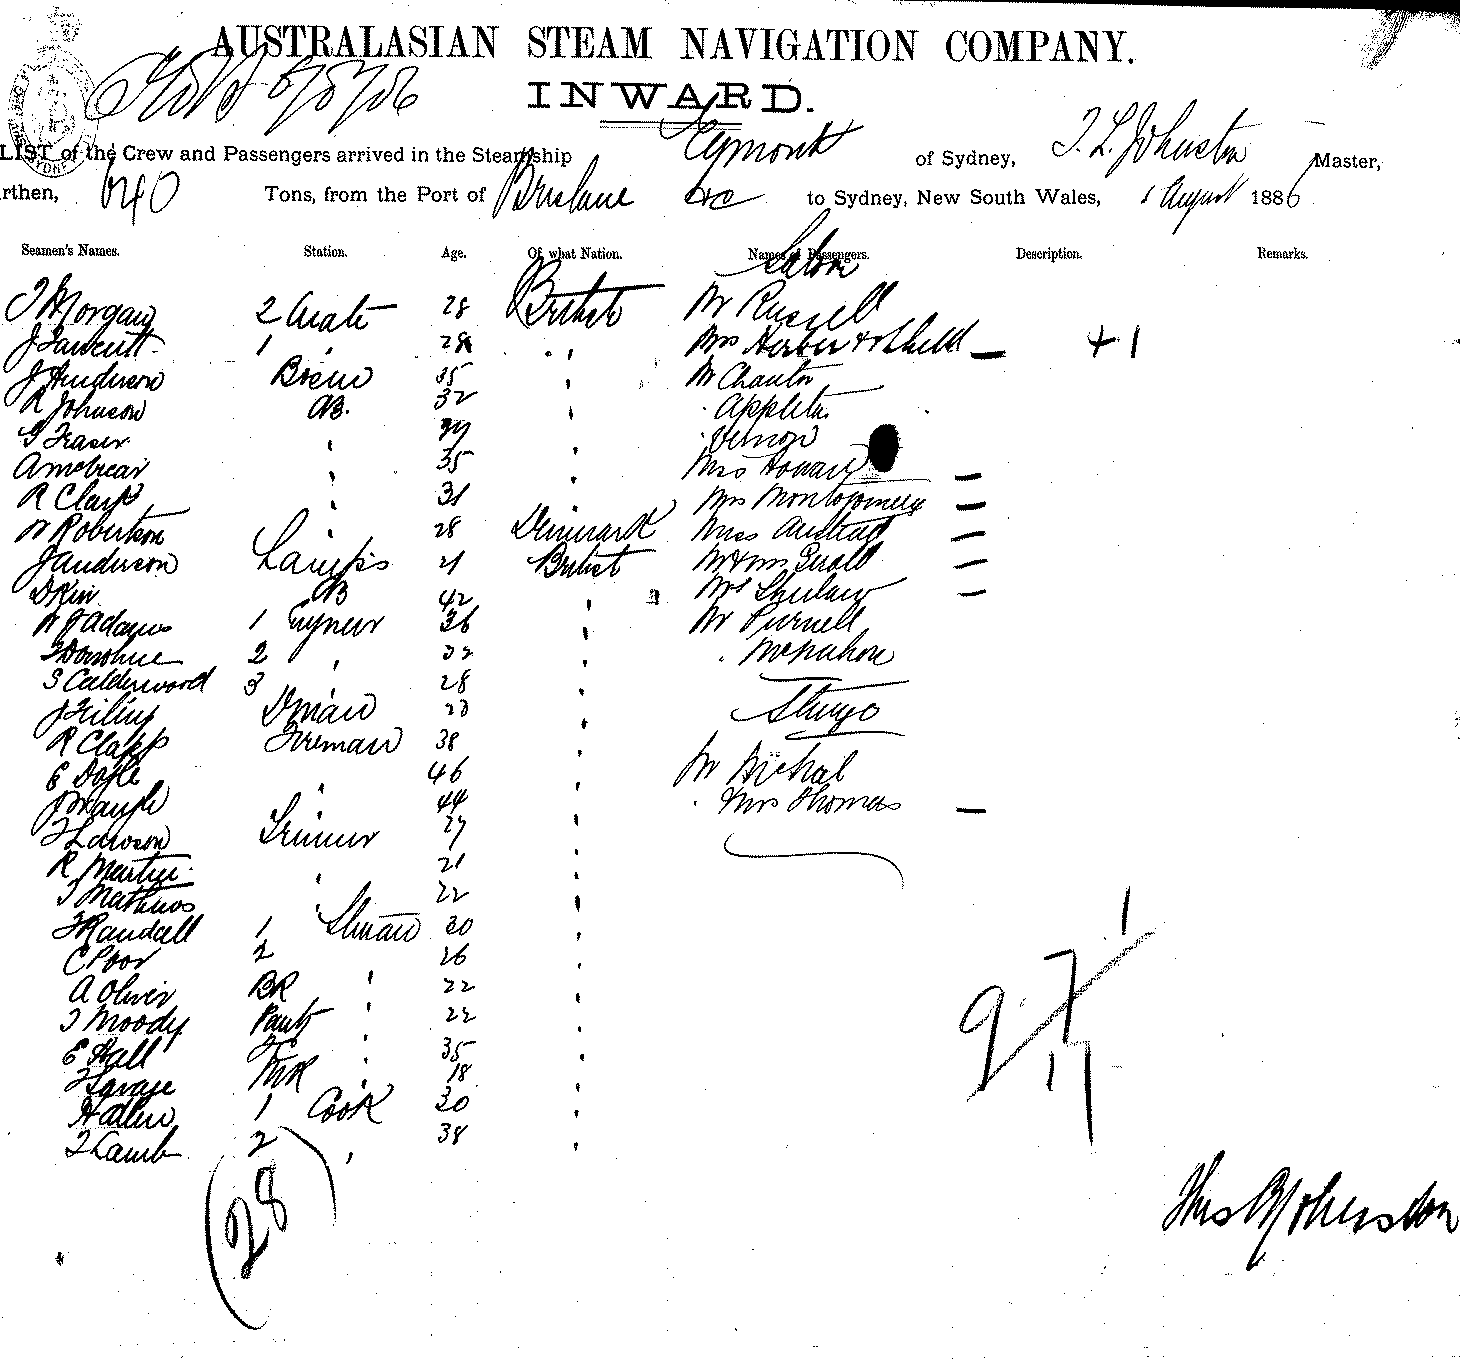 AUSTRALASIAN STEAM NAVIGATION COMPANY.
INWARD.
LIST of the Crew and Passengers arrived in the Steamship Egmont of Sydney, T. L. Johnston Master,
rthen, 640 Tons, from the Port of Brisbane &c to Sydney, New South Wales, 1 August 1886
Seamen's Names. Station. Age. Of what Nation. Names of Passengers. Description. Remarks.
Saloon
J Morgan 2 Mate 28 British Mr Russell
J Fawcett 1 " 28 " Mrs Herber & child — + 1
J Anderson Bosun 35 " Mr Chanter
R Johnson AB. 32 " " Appleton
Fraser " " " Vernon
A McCrear " 35 " Mrs Howard —
R Clark " 31 " Mrs Montgomery —
W Robertson " 28 Denmark Miss —
J Anderson Lamps 21 British Mr & Mrs —
D Kin AB 42 " —
W J Adams 1 Engineer 36 " Mr Purnell
Donohue 2 " 32 " " McMahon
S Calderwood 3 " 28 "
J Dman 23 " Steerage
R Clapp Fireman 38 "
E Doyle " 46 " Mr Nichol
44 " " Mrs Thomas —
Lawson Trimmer 27 "
R Martin " 21 "
T Mathews " 22 "
F Randall 1 Steward 30 "
C Poor 2 " 26 "
A Oliver BR " 22 "
T Moody Panty " 22 "
E Hall FC " 35 "
F Savage MR " 18 "
H Allen 1 Cook 30 "
T Lamb 2 " 38 "
(28)
9 7 1
Thos L Johnston